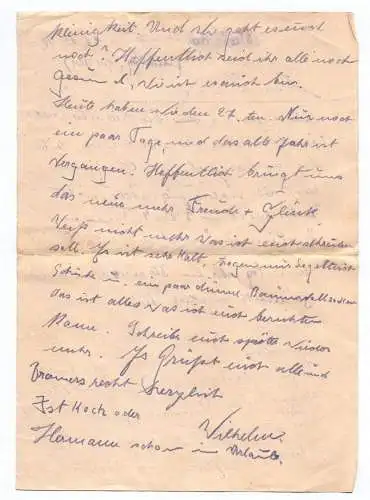 Kleinigkeit. Und wie geht es euch
noch? Hoffentlich seid ihr alle noch
gesund, wie ist es auch bin.
Heute haben wir den 27. ten. Nur noch
ein paar Tage und das alte Jahr ist
vergangen. Hoffentlich bringt uns
das neue mehr Freude + Glück
Weiß nicht mehr was ich euch schreiben
soll. Es ist sehr kalt,
Schuhe u. ein paar dünne
das ist alles was ich euch berichten
kann. Schreibe euch später wieder
mehr. Es Grüßt euch alle und
recht herzlich
Ist Koch oder Wilhelm.
Hamann schon in Urlaub.